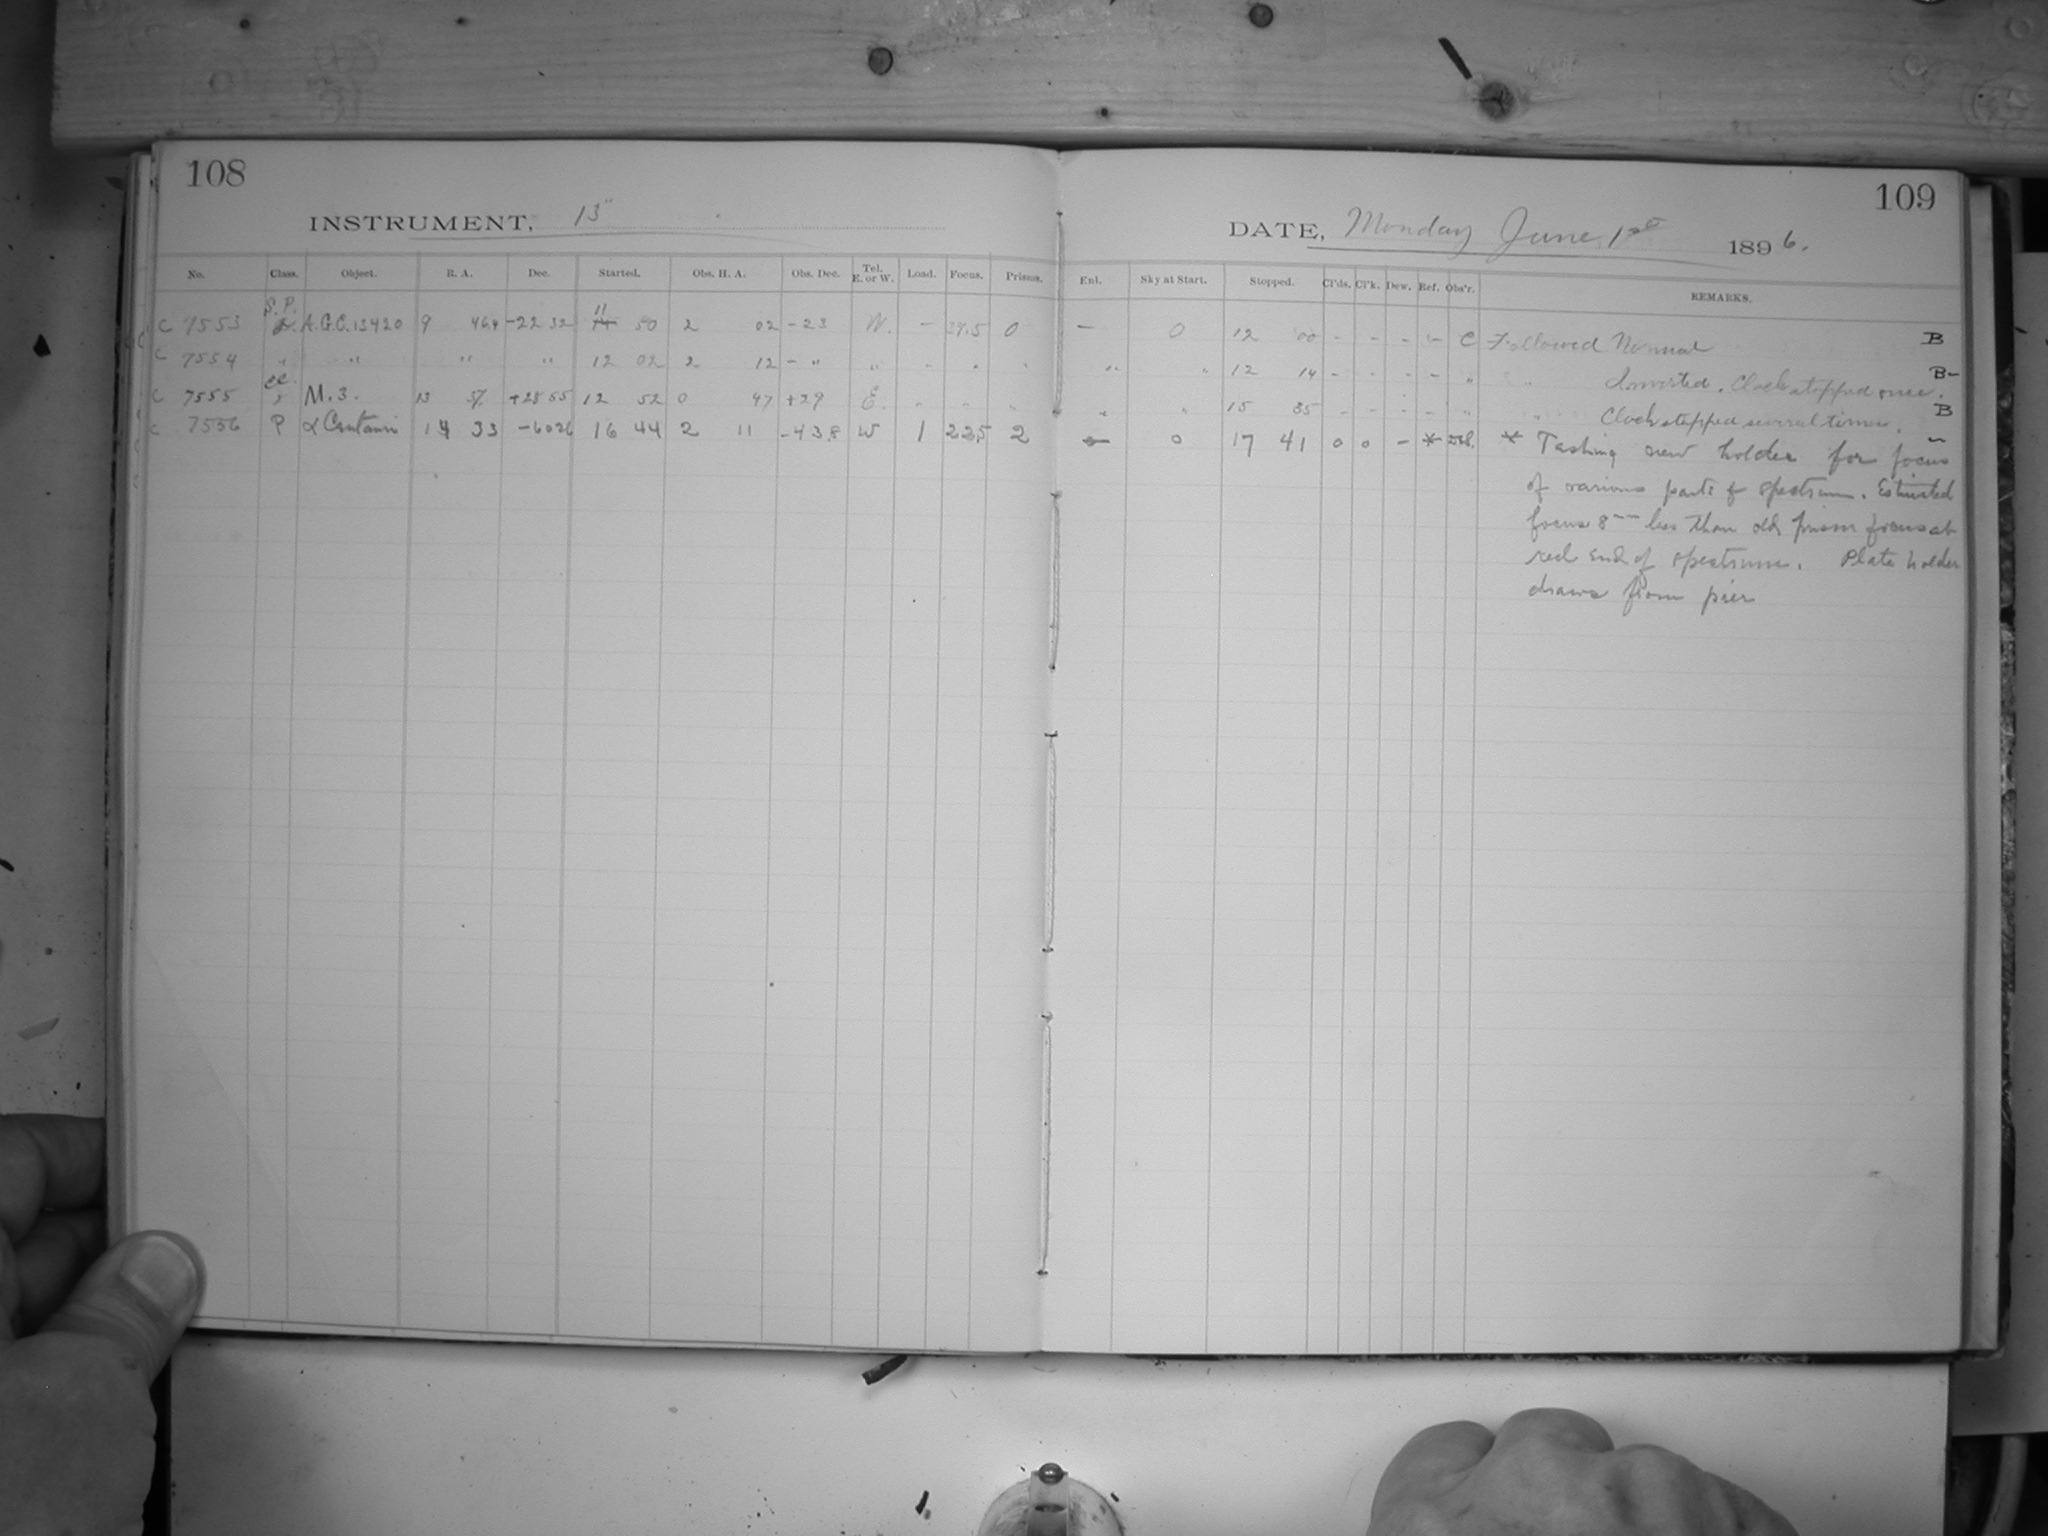 108
INSTRUMENT, 13"
No. Class. Object. R. A. Dec. Started. Obs. H. A. Obs. Dec. Tel. E. or W. Load. Focus. Prisms.
S.P.
C 7553 A.G.C. 13420 9 46.4 -22 32 11 50 2 02 -23 W. - 39.5 0
C 7554 " " " " 12 02 2 12 - " " " " "
C 7555 M. 3. 13 37 +28 55 12 52 0 47 +29 E. " " "
C 7556 P α Centauri 14 33 -60 26 16 44 2 11 -43.8 W 1 22.5 2
109
DATE, Monday June 1st 1896.
Enl. Sky at Start. Stopped. Cl'ds. Cl'k. Dew. Ref. Obs'r. REMARKS.
- 0 12 00 - - - - C Followed Normal B
" " 12 14 - - - - " " Inverted. Clock stopped once. B-
" " 15 35 - - - - " " Clock stopped several times. B
0 17 41 0 0 - * * Testing new holder for focus -
of various parts of spectrum. Estimated
focus 8mm less than old prism focus at
red end of spectrum. Plate holder
draws from pier